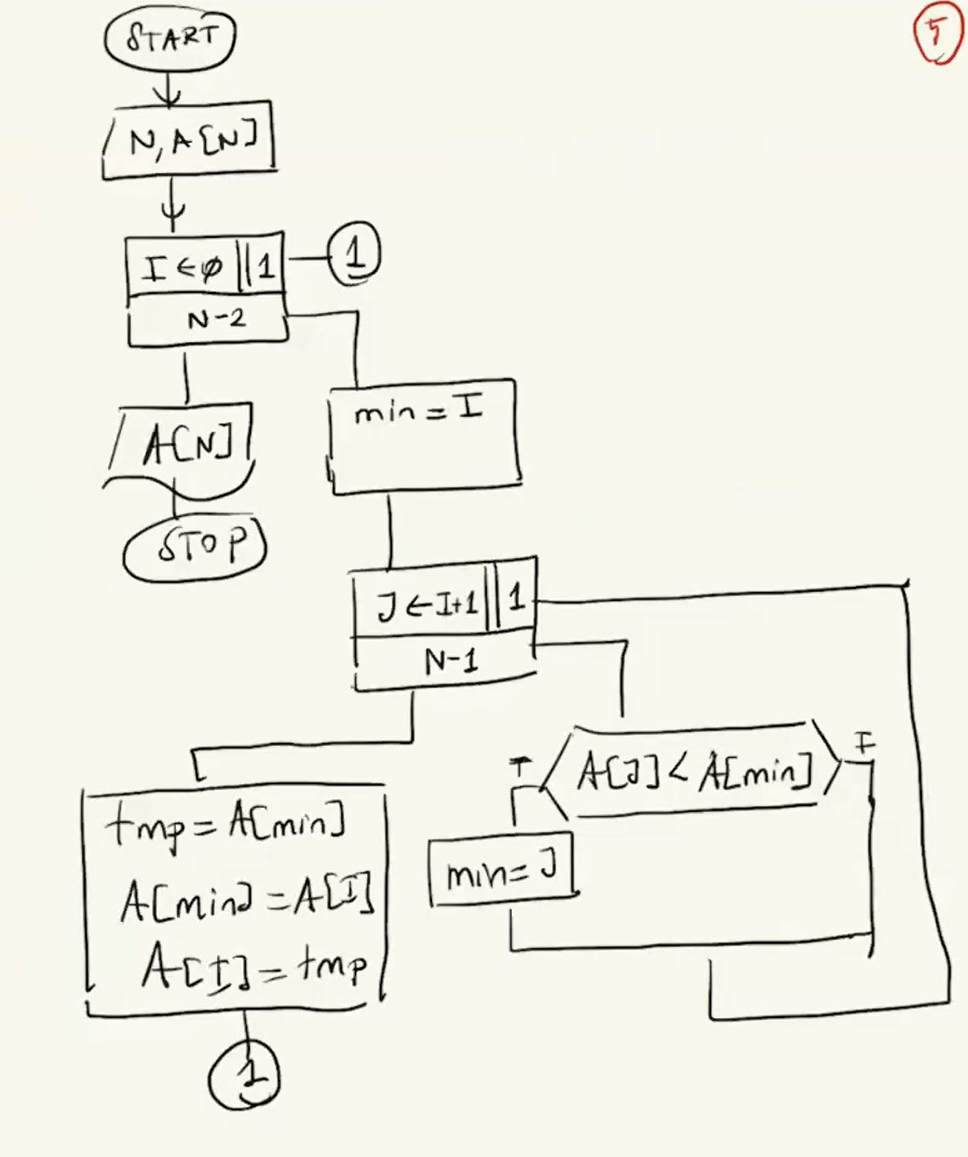 5
START
N, A[N]
I ← φ 1
1
N-2
min = I
A[N]
STOP
J ← I+1 1
N-1
T
A[J] < A[min]
F
tmp = A[min]
A[min] = A[I]
A[I] = tmp
min = J
1